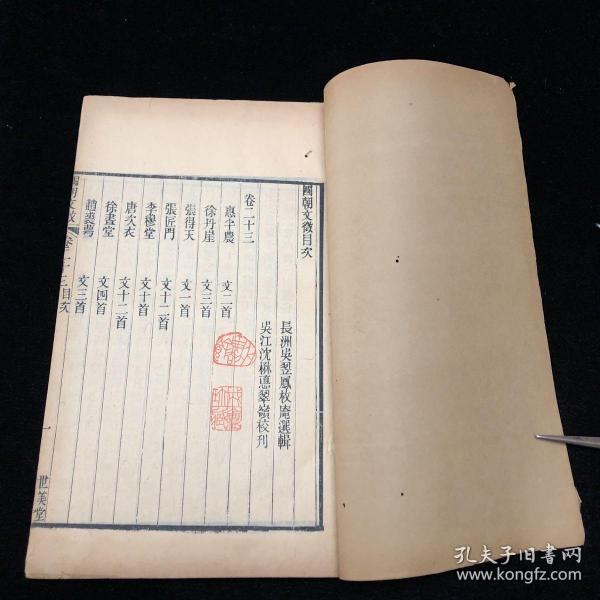 國朝文徵目次
長洲吳翌鳳枚庵選輯
吳江沈楙悳翠嶺校刊
卷二十三
惠半農 文二首
徐丹崖 文三首
張得天 文一首
張匠門 文十二首
李穆堂 文十首
唐次衣 文十二首
徐晝堂 文四首
趙裘萼 文三首
國朝文徵 卷二十三目次 一 世美堂
孔夫子旧书网
www.kongfz.com